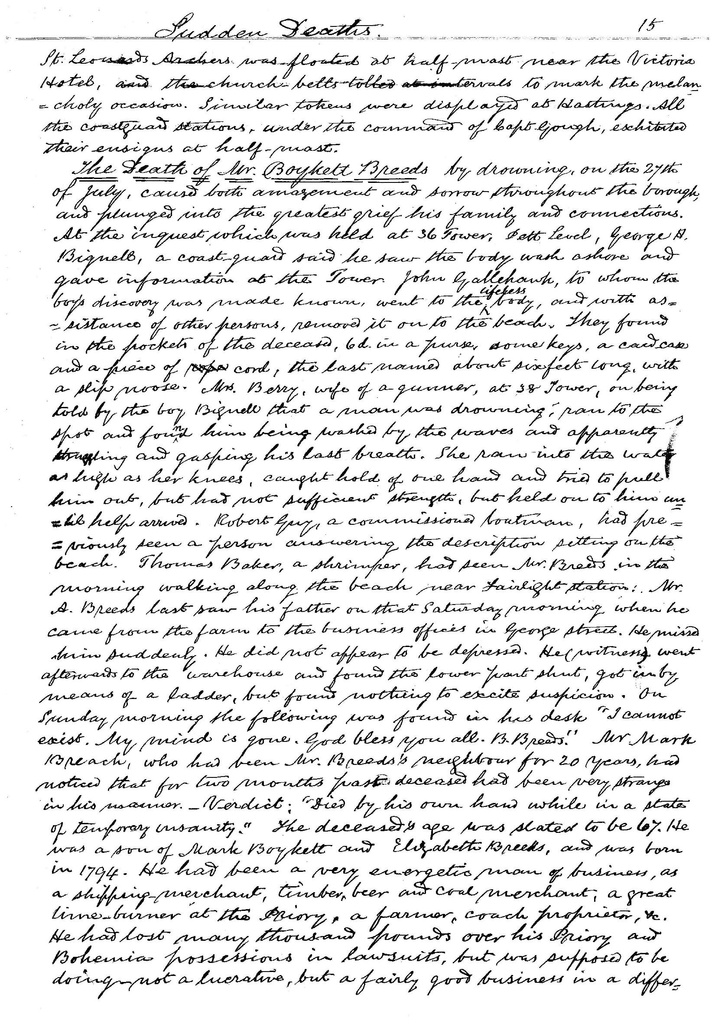 Sudden Deaths. 15
St. Leonards Archers was floated at half-mast near the Victoria
Hotel, and the church-bells tolled at intervals to mark the melan
=choly occasion. Similar tokens were displayed at Hastings. All
the coastguard stations, under the command of Capt Gough, exhibited
their ensigns at half-mast.
The Death of Mr. Boykett Breeds by drowning, on the 27th
of July, caused both amazement and sorrow throughout the borough,
and plunged into the greatest grief his family and connections.
At the inquest which was held at 36 Tower, Pett Level, George H.
Bignell, a coast-guard said he saw the body wash ashore and
gave information at the Tower. John Gallehawk, to whom the
boy's discovery was made known, went to the lifeless body, and with as=
=sistance of other persons, removed it on to the beach. They found
in the pockets of the deceased, 6d in a purse, some keys, a cardcase
and a piece of cord, the last named about six feet long, with
a slip noose. Mrs. Berry, wife of a gunner, at 38 Tower, on being
told by the boy Bignell that a man was drowning, ran to the
spot and found him being washed by the waves and apparently
struggling and gasping his last breath. She ran into the water
as high as her knees, caught hold of one hand and tried to pull
him out, but had not sufficient strength, but held on to him un
=til help arrived. Robert Guy, a commissioned boatman, had pre=
=viously seen a person answering the description sitting on the
beach. Thomas Baker, a shrimper, had seen Mr. Breeds in the
morning walking along the beach near Fairlight station. Mr.
A. Breeds last saw his father on that Saturday morning when he
came from the farm to the business offices in George street. He missed
him suddenly. He did not appear to be depressed. He (witness) went
afterwards to the warehouse and found the lower part shut, got in by
means of a ladder, but found nothing to excite suspicion. On
Sunday morning the following was found in his desk "I cannot
exist. My mind is gone. God bless you all. B. Breeds." Mr Mark
Breach, who had been Mr. Breeds's neighbour for 20 years, had
noticed that for two months past deceased had been very strange
in his manner. - Verdict; "Died by his own hand while in a state
of temporary insanity." The deceased's age was stated to be 67. He
was a son of Mark Boykett and Elizabeth Breeds, and was born
in 1794. He had been a very energetic man of business, as
a shipping-merchant, timber, beer and coal merchant, a great
lime-burner at the Priory, a farmer, coach proprietor, &c.
He had lost many thousand pounds over his Priory and
Bohemia possessions in lawsuits, but was supposed to be
doing not a lucrative, but a fairly good business in a differ=